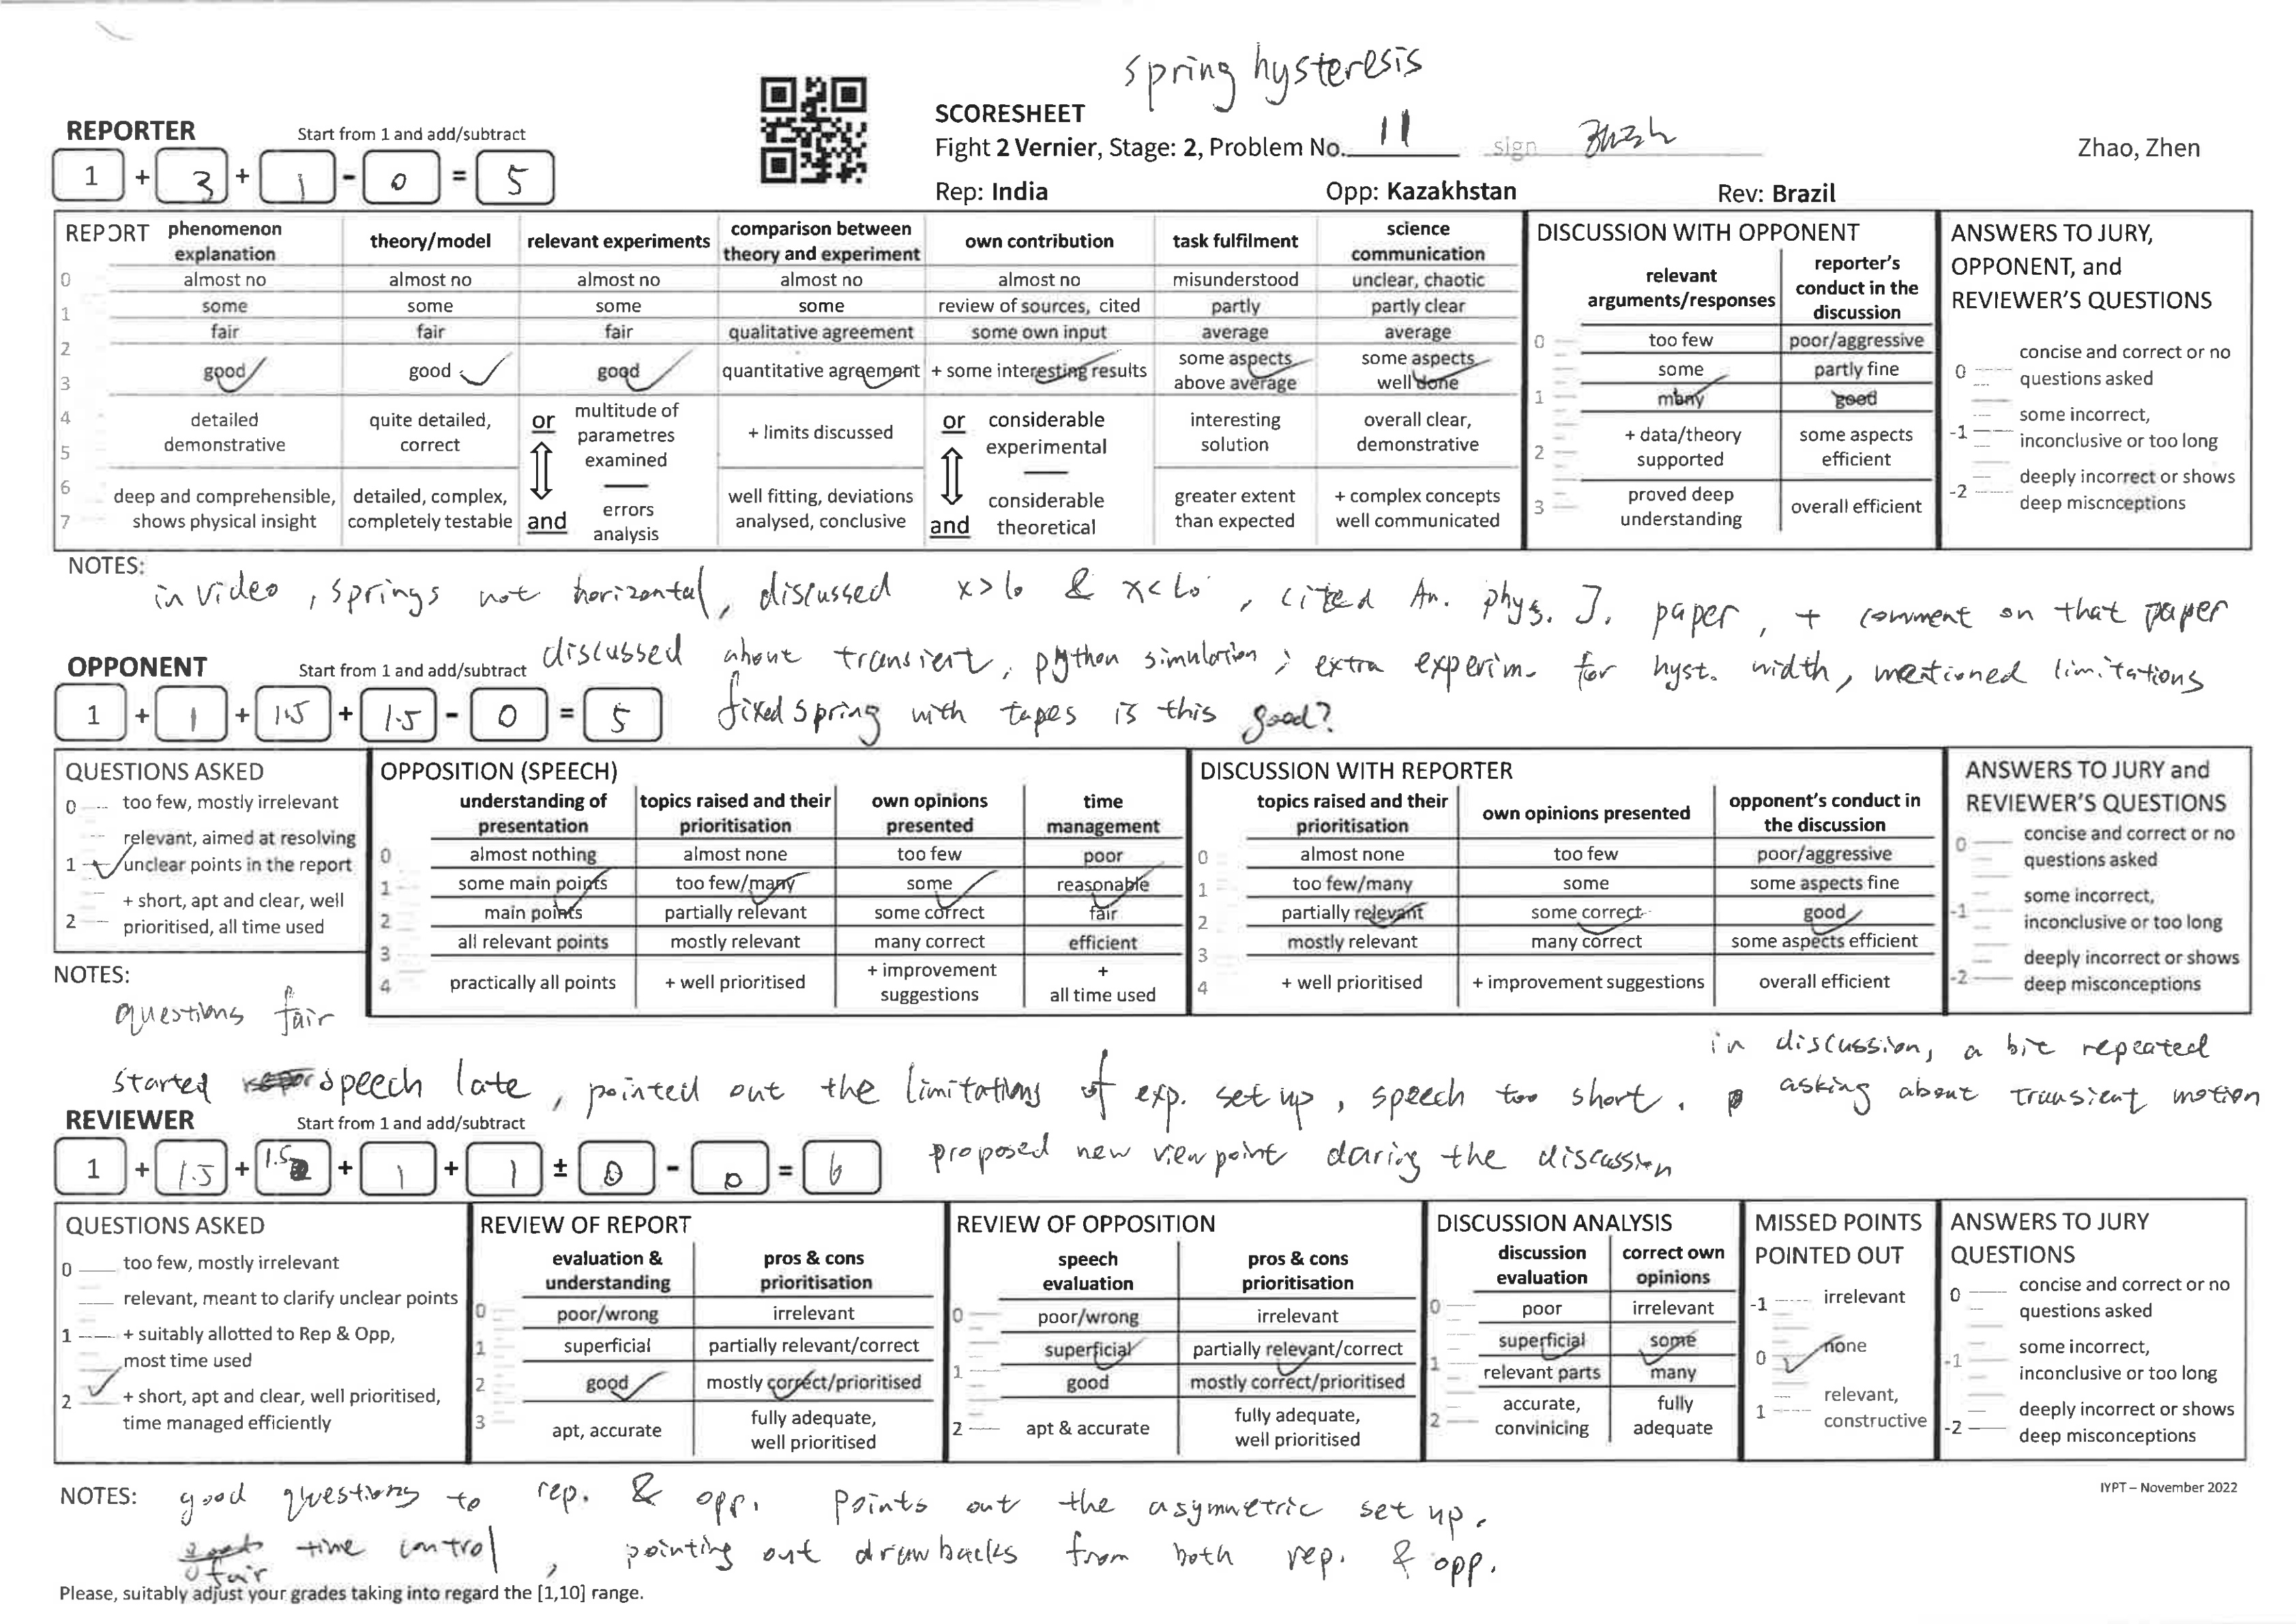 spring hysteresis
SCORESHEET
REPORTER Start from 1 and add/subtract
Fight 2 Vernier, Stage: 2, Problem No. 11 sign Zhao, Zhen
1 + 3 + 1 - 0 = 5
Rep: India Opp: Kazakhstan Rev: Brazil
REPORT phenomenon explanation theory/model relevant experiments comparison between theory and experiment own contribution task fulfilment science communication
0 almost no almost no almost no almost no almost no misunderstood unclear, chaotic
1 some some some some review of sources, cited partly partly clear
2 fair fair fair qualitative agreement some own input average average
3 good good good quantitative agreement + some interesting results some aspects above average some aspects well done
4 5 detailed demonstrative quite detailed, correct or multitude of parametres examined + limits discussed or considerable experimental interesting solution overall clear, demonstrative
6 7 deep and comprehensible, shows physical insight detailed, complex, completely testable and errors analysis well fitting, deviations analysed, conclusive and considerable theoretical greater extent than expected + complex concepts well communicated
DISCUSSION WITH OPPONENT
relevant arguments/responses reporter's conduct in the discussion
0 too few poor/aggressive
some partly fine
1 many good
2 + data/theory supported some aspects efficient
3 proved deep understanding overall efficient
ANSWERS TO JURY, OPPONENT, and REVIEWER'S QUESTIONS
0 concise and correct or no questions asked
-1 some incorrect, inconclusive or too long
-2 deeply incorrect or shows deep miscnceptions
NOTES:
in video, springs not horizontal, discussed x>lo & x<Lo, cited Am. phys. J. paper, + comment on that paper
discussed about transient, python simulation, extra experim. for hyst. width, mentioned limitations
fixed spring with tapes is this good?
OPPONENT Start from 1 and add/subtract
1 + 1 + 1.5 + 1.5 - 0 = 5
QUESTIONS ASKED
0 too few, mostly irrelevant
1 relevant, aimed at resolving unclear points in the report
2 + short, apt and clear, well prioritised, all time used
OPPOSITION (SPEECH)
understanding of presentation topics raised and their prioritisation own opinions presented time management
0 almost nothing almost none too few poor
1 some main points too few/many some reasonable
2 main points partially relevant some correct fair
3 all relevant points mostly relevant many correct efficient
4 practically all points + well prioritised + improvement suggestions + all time used
DISCUSSION WITH REPORTER
topics raised and their prioritisation own opinions presented opponent's conduct in the discussion
0 almost none too few poor/aggressive
1 too few/many some some aspects fine
2 partially relevant some correct good
3 mostly relevant many correct some aspects efficient
4 + well prioritised + improvement suggestions overall efficient
ANSWERS TO JURY and REVIEWER'S QUESTIONS
0 concise and correct or no questions asked
-1 some incorrect, inconclusive or too long
-2 deeply incorrect or shows deep misconceptions
NOTES:
questions fair
started speech late, pointed out the limitations of exp. set up, speech too short.
in discussion, a bit repeated
asking about transient motion
proposed new viewpoint during the discussion
REVIEWER Start from 1 and add/subtract
1 + 1.5 + 1.5 + 1 + 1 ± 0 - 0 = 6
QUESTIONS ASKED
0 too few, mostly irrelevant
relevant, meant to clarify unclear points
1 + suitably allotted to Rep & Opp, most time used
2 + short, apt and clear, well prioritised, time managed efficiently
REVIEW OF REPORT
evaluation & understanding pros & cons prioritisation
0 poor/wrong irrelevant
1 superficial partially relevant/correct
2 good mostly correct/prioritised
3 apt, accurate fully adequate, well prioritised
REVIEW OF OPPOSITION
speech evaluation pros & cons prioritisation
0 poor/wrong irrelevant
superficial partially relevant/correct
1 good mostly correct/prioritised
2 apt & accurate fully adequate, well prioritised
DISCUSSION ANALYSIS
discussion evaluation correct own opinions
0 poor irrelevant
superficial some
1 relevant parts many
2 accurate, convinicing fully adequate
MISSED POINTS POINTED OUT
-1 irrelevant
0 none
1 relevant, constructive
ANSWERS TO JURY QUESTIONS
0 concise and correct or no questions asked
-1 some incorrect, inconclusive or too long
-2 deeply incorrect or shows deep misconceptions
NOTES:
good questions to rep. & opp. Points out the asymmetric set up.
fair time control, pointing out drawbacks from both rep. & opp.
IYPT – November 2022
Please, suitably adjust your grades taking into regard the [1,10] range.